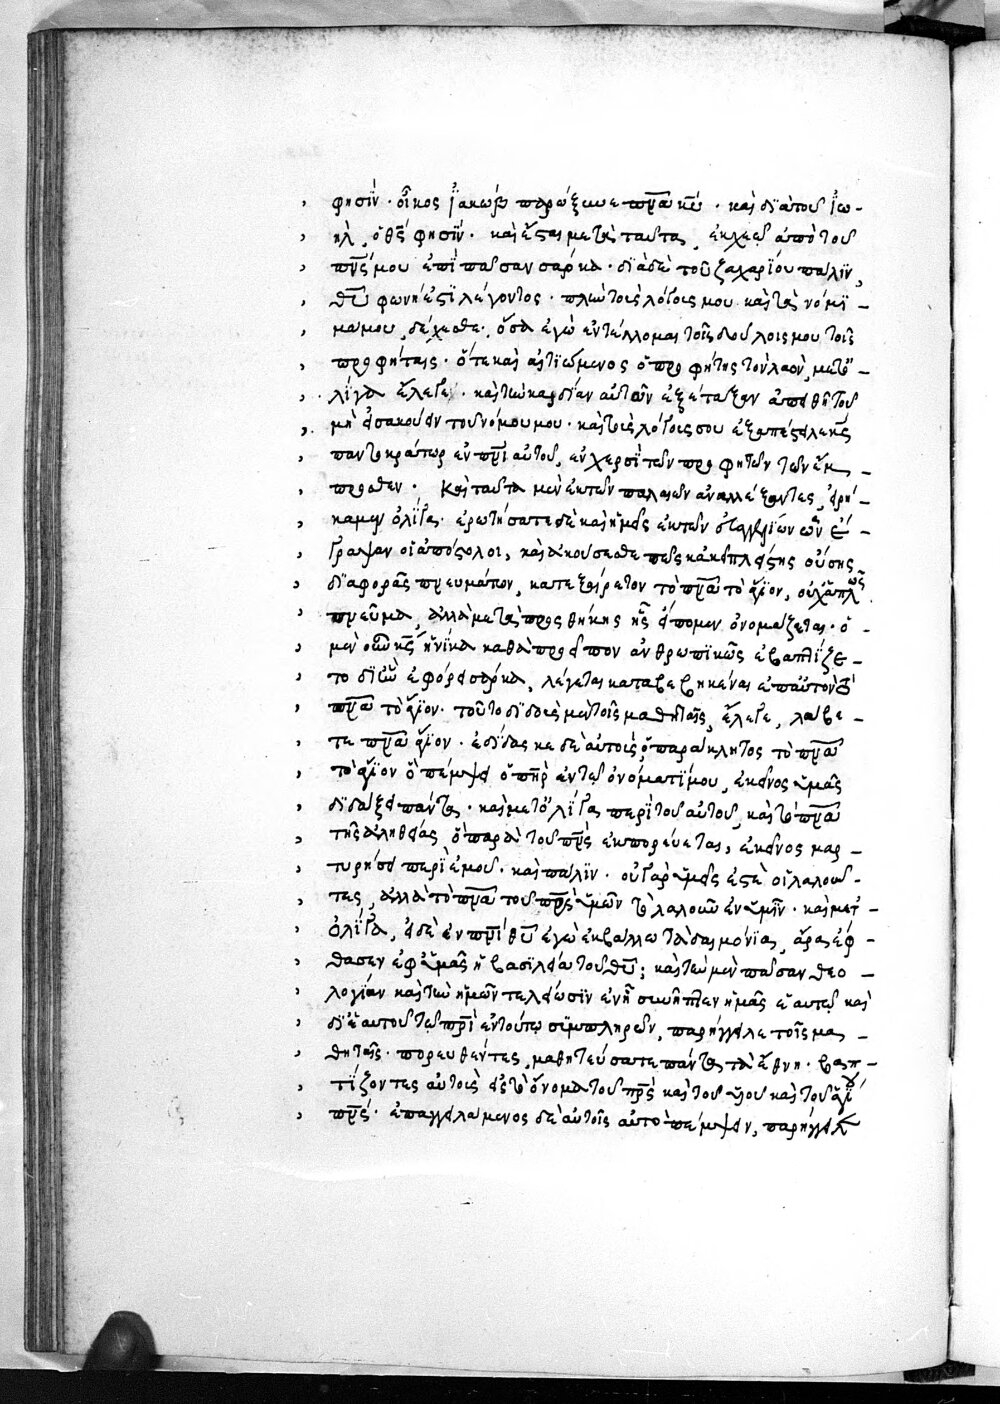 φησίν · οἶκος Ἰακὼβ παρώξυνε πνᾶ κυ · καὶ διὰ τοῦ Ἰω-
ὴλ, ὁ θς φησίν · καὶ ἔσται μετὰ ταῦτα, ἐκχεῶ ἀπὸ τοῦ
πνς μου ἐπὶ πᾶσαν σάρκα · διὰ δὲ τοῦ ζαχαρίου πάλιν,
θυ φωνή ἐστι λέγοντος · πλὴν τοὺς λόγους μου καὶ τὰ νόμι-
μά μου, δέχεσθε · ὅσα ἐγὼ ἐντέλλομαι τοῖς δούλοις μου τοῖς
προφήταις · ὅτε καὶ αἰτιώμενος ὁ προφήτης τὸν λαὸν, μετ' ὀ-
λίγα ἔλεγεν · καὶ τὴν καρδίαν αὐτῶν ἔταξαν ἀπειθῆ τοῦ
μὴ εἰσακούειν τοῦ νόμου μου · καὶ τοὺς λόγους οὓς ἐξαπέστειλε κς
παντοκράτωρ ἐν πνι αὐτοῦ, ἐν χερσὶ τῶν προφητῶν τῶν ἔμ-
προσθεν · Καὶ ταῦτα μὲν ἐκ τῶν παλαιῶν ἀναλέξαντες, εἰρή-
καμεν ὀλίγα · ἐρωτήσατε δὲ καὶ ἡμᾶς ἐκ τῶν εὐαγγελίων ὧν ἔ-
γραψαν οἱ ἀπόστολοι, καὶ ἀκούσεσθε πῶς κἀκεῖ πλείστης οὔσης
διαφορᾶς πνευμάτων, κατεξαίρετον τὸ πνᾶ τὸ ἅγιον, οὐχ ἁπλῶς
πνεῦμα, ἀλλὰ μετὰ προσθήκης ἧς εἴπομεν ὀνομάζεται · ὁ
μὲν οὖν κς ἡνίκα καθὰ πρέπον ἀνθρωπικῶς ἐβαπτίζε-
το δι' ἣν ἐφόρει σάρκα, λέγεται καταβεβηκέναι ἐπ' αὐτὸν
πνᾶ τὸ ἅγιον · τοῦτο διδοὺς μὲν τοῖς μαθηταῖς, ἔλεγε, λάβε-
τε πνᾶ ἅγιον · ἐδίδασκε δὲ αὐτοὺς, ὁ παράκλητος τὸ πνᾶ
τὸ ἅγιον ὃ πέμψει ὁ πηρ ἐν τῷ ὀνόματί μου, ἐκεῖνος ὑμᾶς
διδάξει πάντα · καὶ μετ' ὀλίγα περὶ τοῦ αὐτοῦ, καὶ τὸ πνᾶ
τῆς ἀληθείας ὃ παρὰ τοῦ πρς ἐκπορεύεται, ἐκεῖνος μαρ-
τυρήσει περὶ ἐμοῦ · καὶ πάλιν · οὐ γὰρ ὑμεῖς ἐστὲ οἱ λαλοῦν-
τες, ἀλλὰ τὸ πνᾶ τοῦ πρς ὑμῶν τὸ λαλοῦν ἐν ὑμῖν · καὶ μετ'
ὀλίγα, εἰ δὲ ἐν πνι θυ ἐγὼ ἐκβάλλω τὰ δαιμόνια, ἄρα ἔφ-
θασεν ἐφ' ὑμᾶς ἡ βασιλεία τοῦ θυ; καὶ τὴν μὲν πᾶσαν θεο-
λογίαν καὶ τὴν ἡμῶν τελείωσιν ἐν ᾗ συνῆπτεν ἡμᾶς ἑαυτῷ καὶ
δι' ἑαυτοῦ τῷ πρι ἐν τούτῳ συμπληρῶν, παρήγγειλε τοῖς μα-
θηταῖς · πορευθέντες, μαθητεύσατε πάντα τὰ ἔθνη · βαπ-
τίζοντες αὐτοὺς εἰς τὸ ὄνομα τοῦ πρς καὶ τοῦ υἱοῦ καὶ τοῦ ἁγίου
πνς · ἐπαγγειλάμενος δὲ αὐτοῖς αὐτὸ πέμψειν, παρήγγειλε